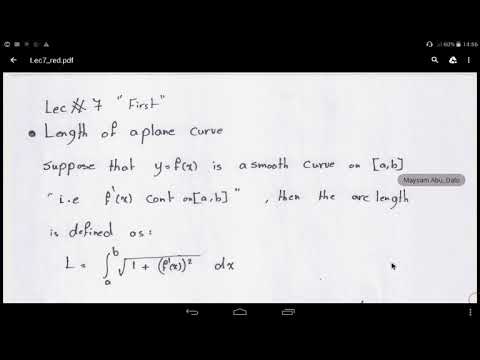 60% 14:06
Lec7_red.pdf
Lec # 7 "First"
• Length of a plane curve
Suppose that y=f(x) is a smooth curve on [a,b]
Maysam Abu_Dalo
"i.e f'(x) cont on [a,b]", then the arc length
is defined as:
L = ∫_a^b √(1 + (f'(x))²) dx